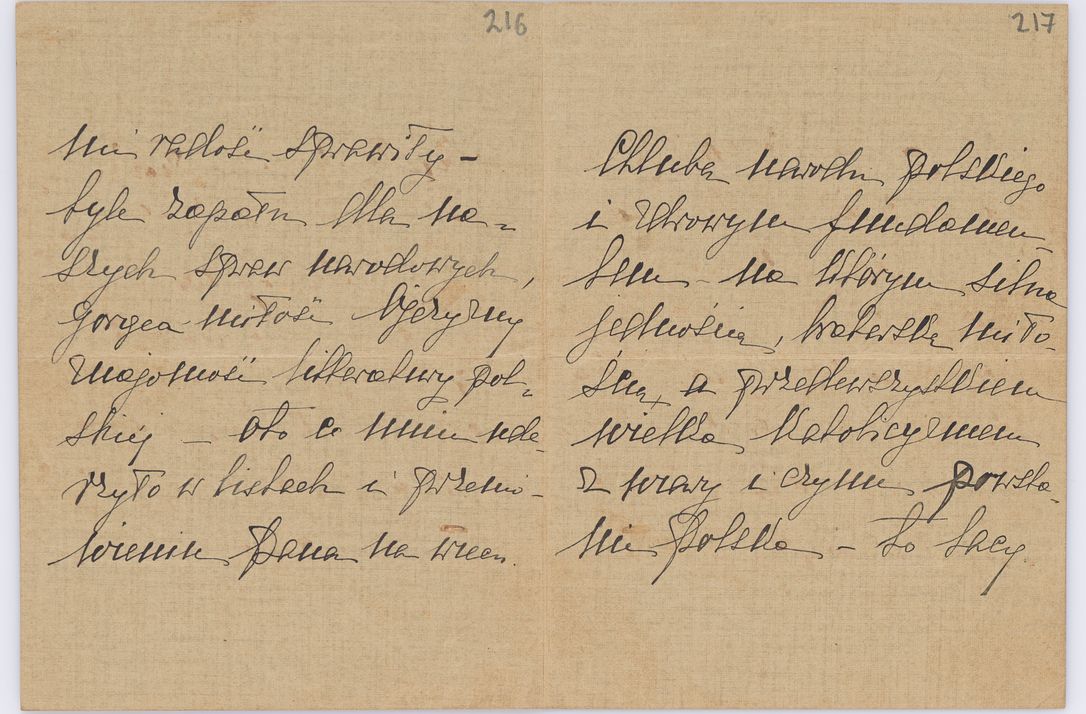 216
mi radość sprawiły –
tyle zapału dla na-
szych spraw narodowych,
gorąca miłość Ojczyzny
znajomość litteratury pol-
skiej – oto co mnie ude-
rzyło w listach i przemó-
wieniu Pana na wiecu.
217
Chlubą narodu polskiego
i zdrowym fundamen-
tem – na którym silna
jednością, braterską miło-
ścią, a przedewszystkiem
wielka Katolicyzmem
z wiary i czynu powsta-
nie Polska – to tacy